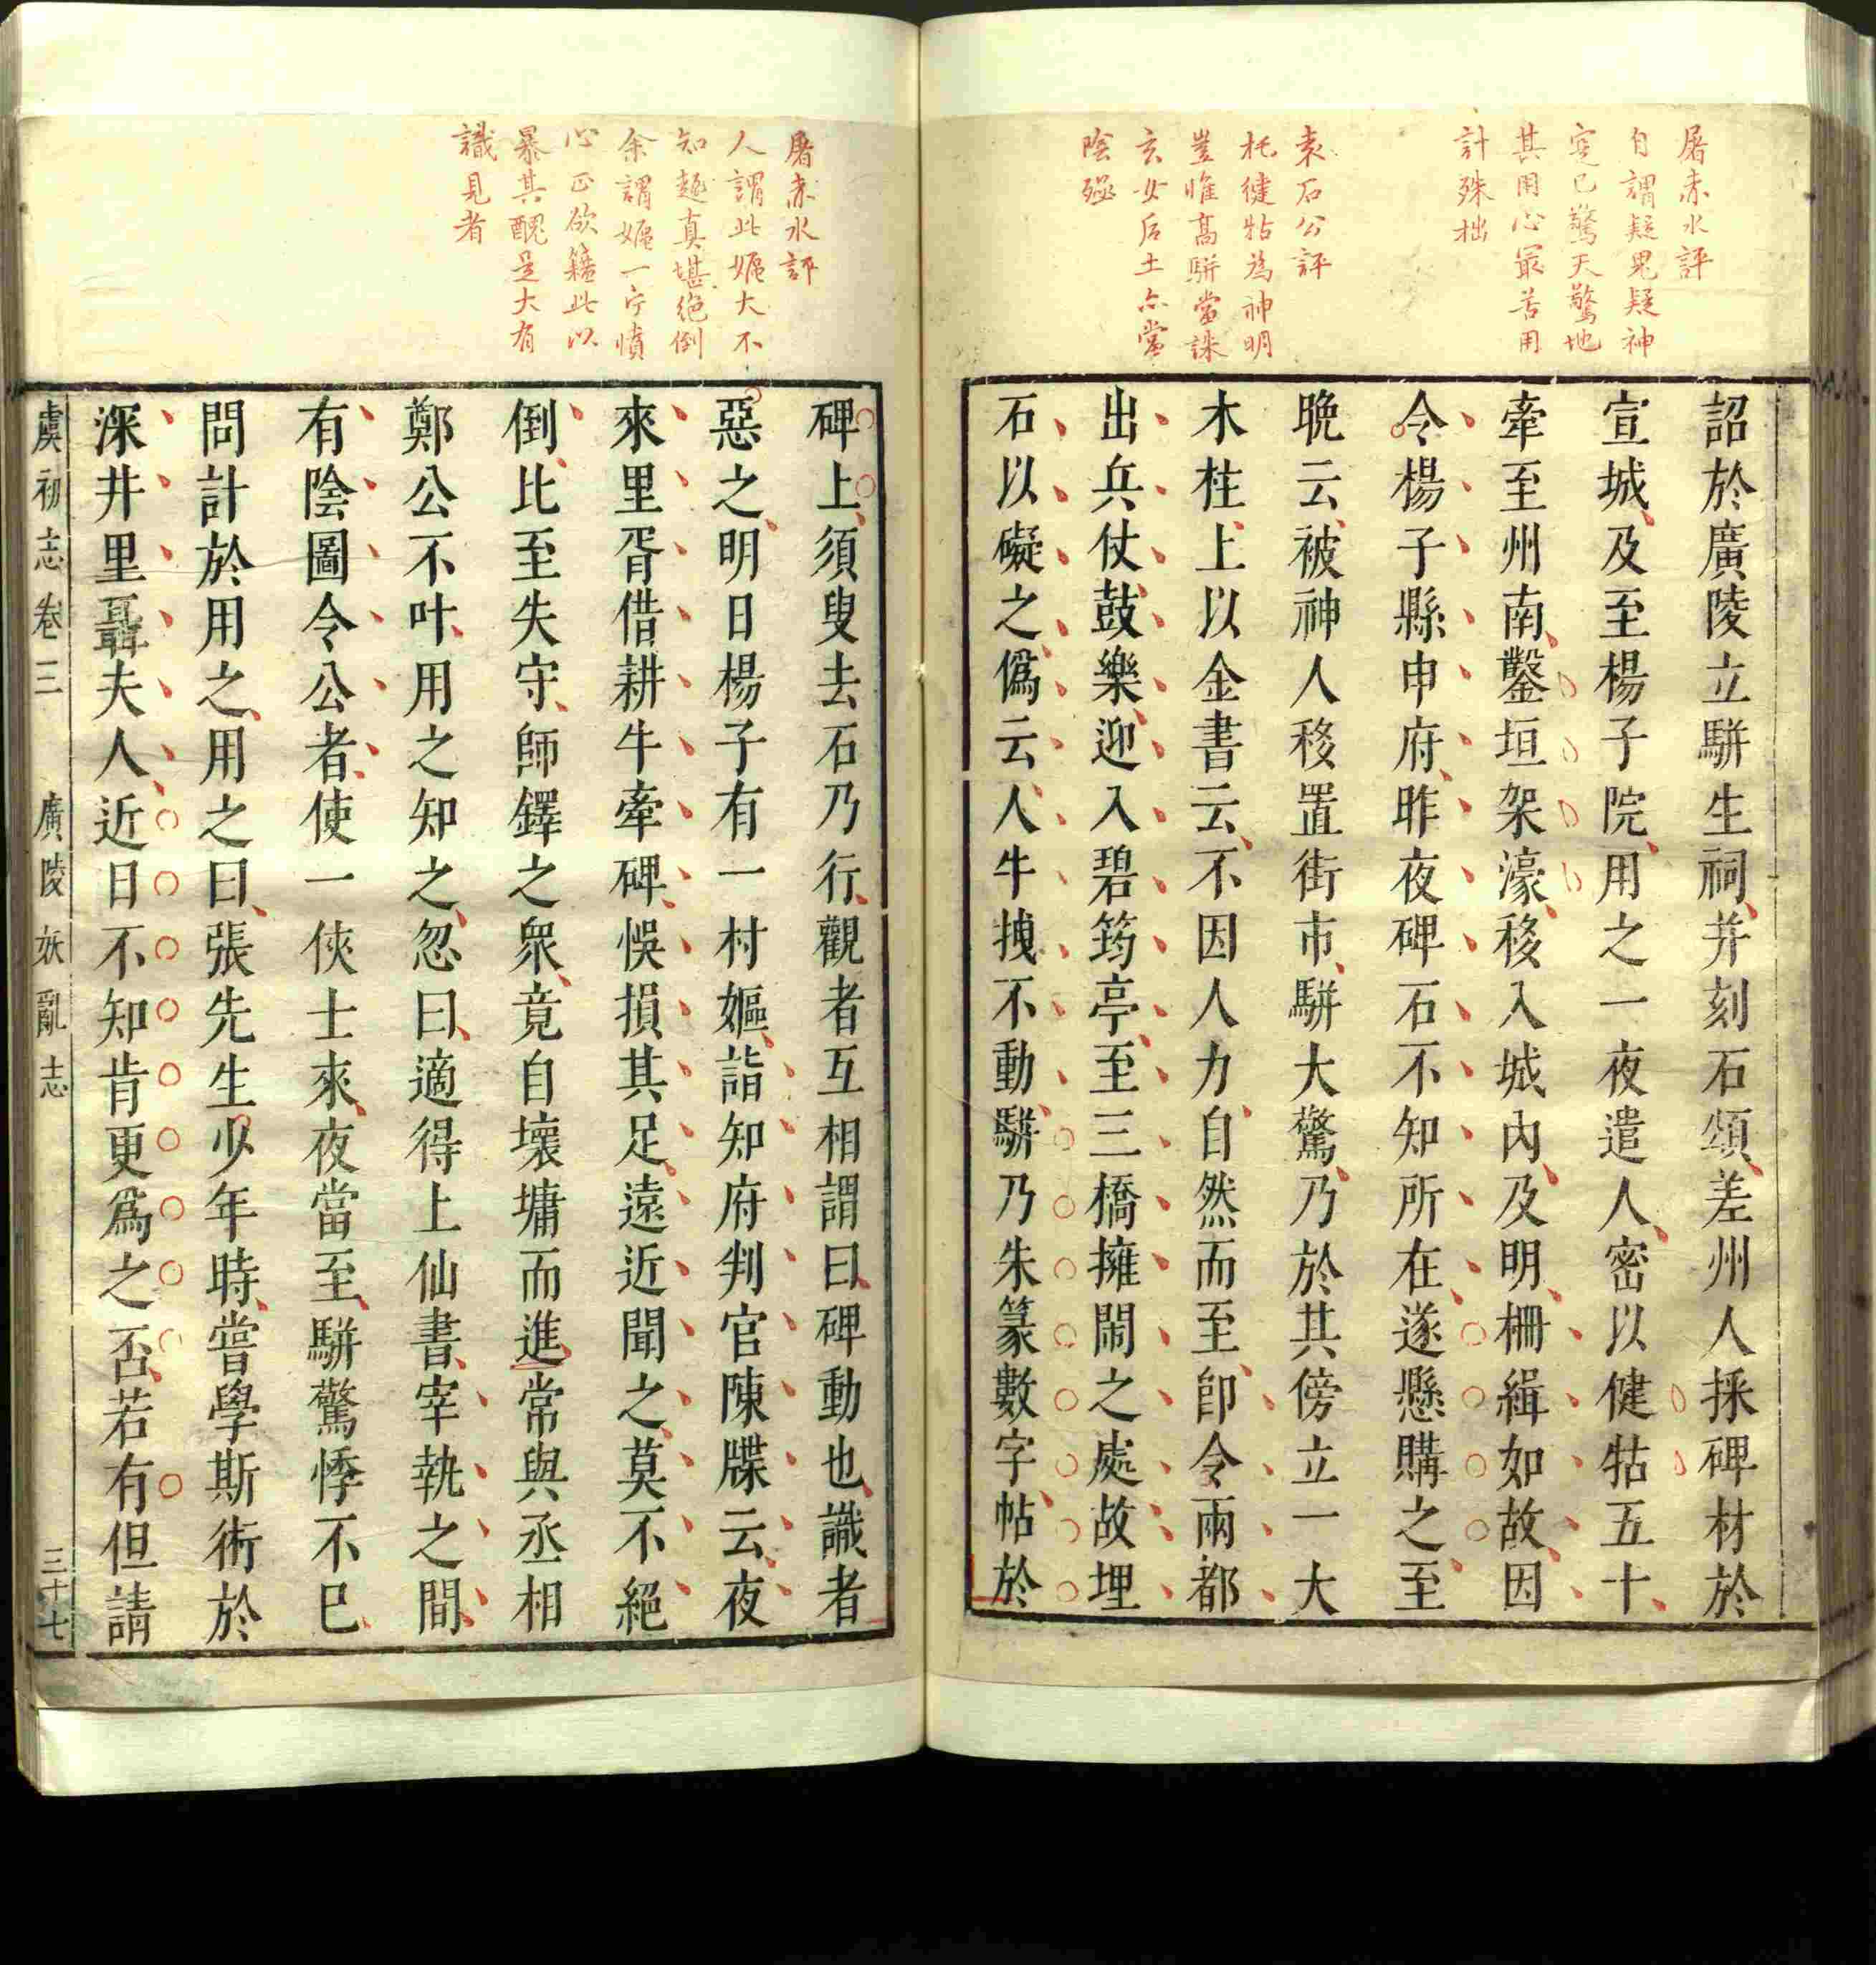 屠赤水評
自謂疑鬼疑神
寔已驚天驚地
其用心最苦用
計殊拙
袁石公評
托健牯為神明
豈惟高駢當誅
玄女后土亦當
陰殛
詔於廣陵立駢生祠并刻石頌差州人採碑材於
宣城及至楊子院用之一夜遣人密以健牯五十
牽至州南鑿垣架濠移入城內及明柵緝如故因
令楊子縣申府昨夜碑石不知所在遂懸購之至
晚云被神人移置街市駢大驚乃於其傍立一大
木柱上以金書云不因人力自然而至卽令兩都
出兵仗鼓樂迎入碧筠亭至三橋擁鬧之處故埋
石以礙之偽云人牛拽不動駢乃朱篆數字帖於
屠赤水評
人謂此嫗大不
知趣真堪絕倒
余謂嫗一宁憤
心正欲籍此以
暴其醜是大有
識見者
碑上須叟去石乃行觀者互相謂曰碑動也識者
惡之明日楊子有一村嫗詣知府判官陳牒云夜
來里胥借耕牛牽碑悞損其足遠近聞之莫不絕
倒比至失守師鐸之衆竟自壞墉而進常與丞相
鄭公不叶用之知之忽曰適得上仙書宰執之間
有陰圖令公者使一俠士來夜當至駢驚悸不巳
問計於用之用之曰張先生少年時嘗學斯術於
深井里聶夫人近日不知肯更爲之否若有但請
虞初志 卷三 廣陵妖亂志 三十七